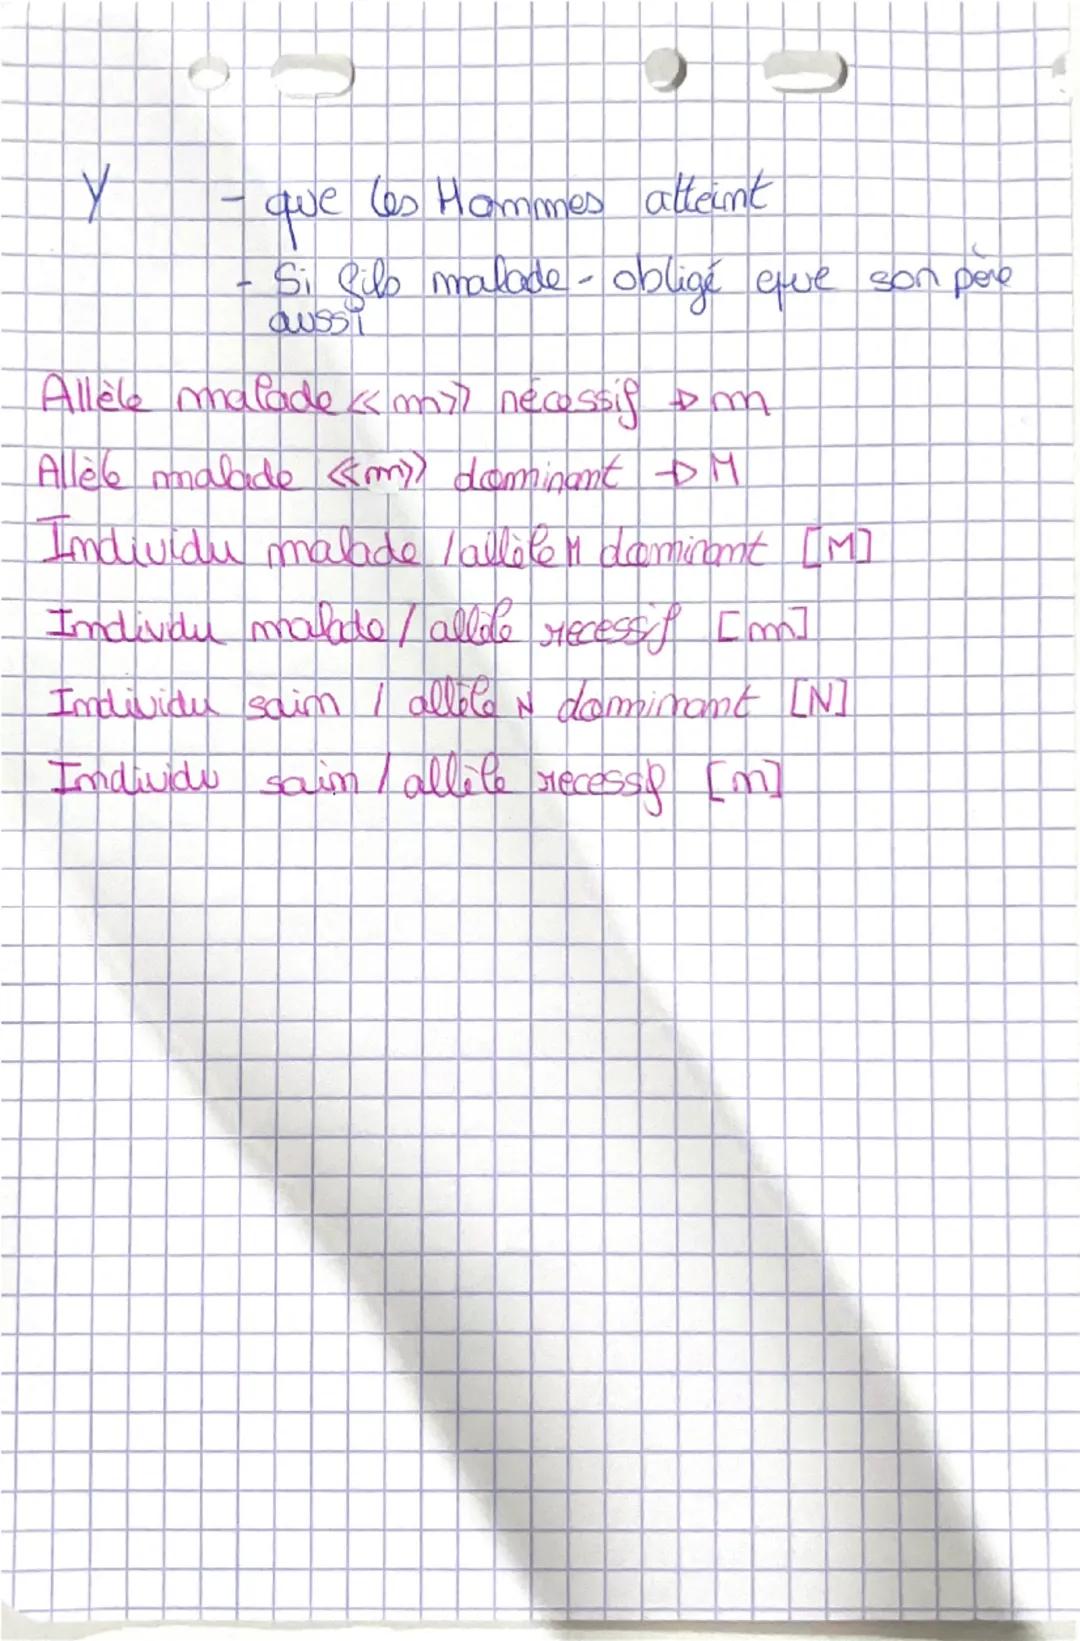 Y - que les Hommes atteint
- Si fils malade - obligé que son père
aussi
Allèle malade «m» récessif → m
Allèle malade «m» dominant → M
Individu malade / allèle M dominant [M]
Individu malade / allèle recessif [m]
Individu sain / allèle N dominant [N]
Individu sain / allèle recessif [n]